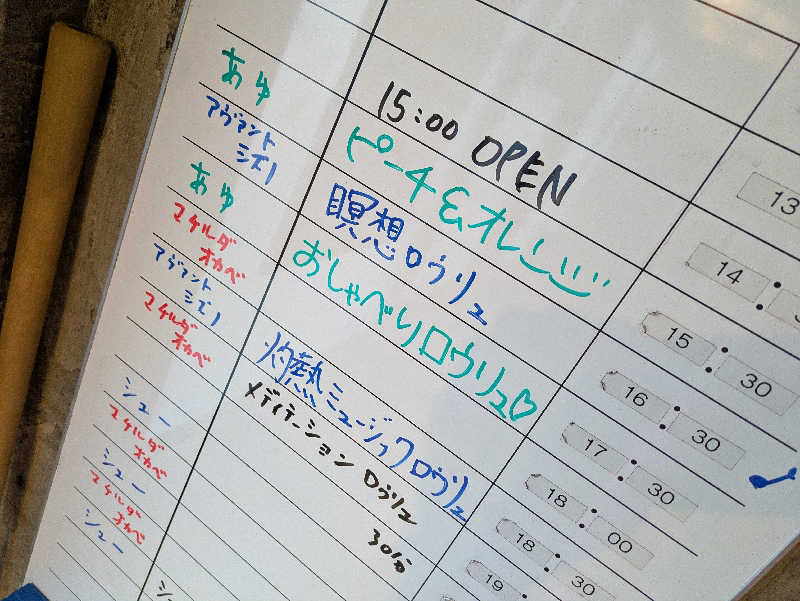 15:00 OPEN
13
あゆ
ピーチ&オレンジ
14 :
アヴァント
ミズノ
瞑想ロウリュ
15 : 30
あゆ
おしゃべりロウリュ♡
16 : 30
マケルダ
オカベ
17 : 30
アヴァント
ミズノ
灼熱ミュージックロウリュ
18 : 00
マケルダ
オカベ
メディテーション ロウリュ 30分
18 : 30
シュー
19 :
マケルダ
オカベ
シュー
マケルダ
オカベ
シュー